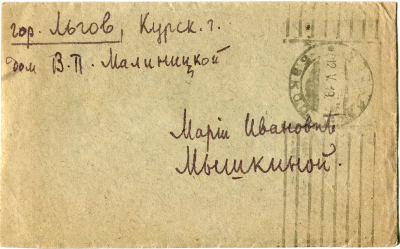 гор. Льгов, Курск. г.
дом В. П. Малиницкой
Маріи Ивановнѣ
Мышкиной.